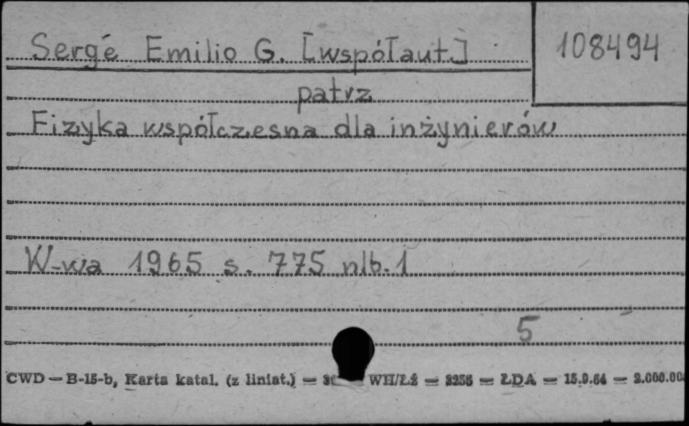 Sergé Emilio G. [współaut.]
108494
patrz
Fizyka współczesna dla inżynierów
W-wa 1965 s. 775 nlb. 1
5
CWD — B-15-b, Karta katal. (z liniat.) — WH/Łź — — ŁDA — 15.9.64 —